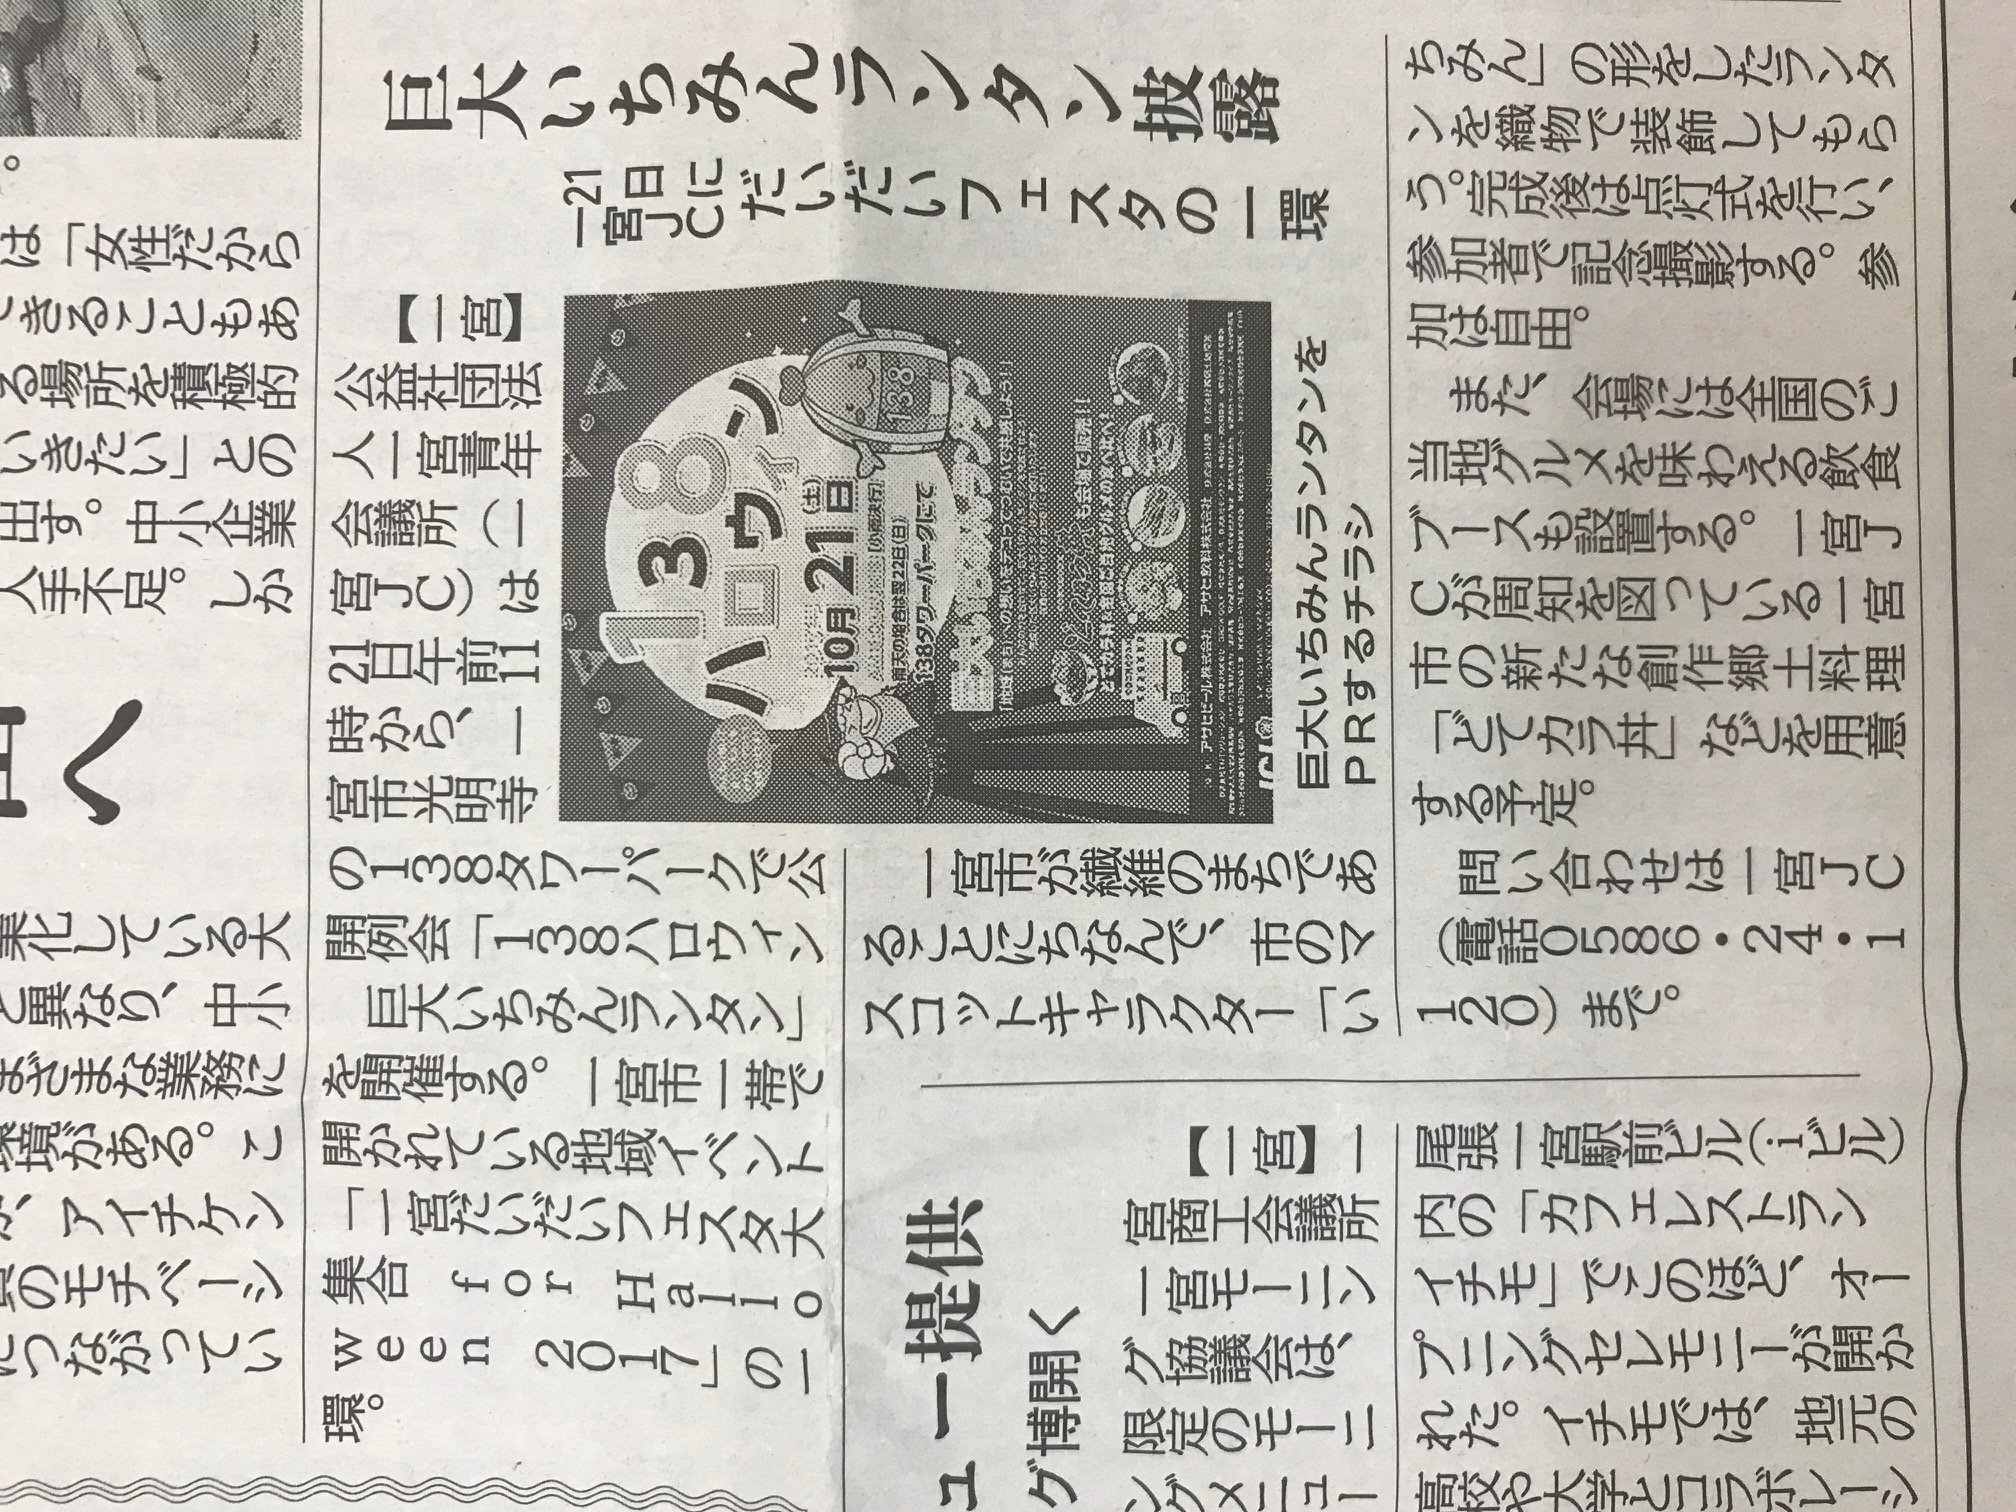 巨大いちみんランタン披露
一宮JC
21日に
だいだいフェスタの一環
【一宮】
公益社団法
人一宮青年
会議所(一
宮JC)は
21日午前11
時から、一
宮市光明寺
の138タワーパークで公
開例会「138ハロウィン
巨大いちみんランタン」
を開催する。一宮市一帯で
開かれている地域イベント
「一宮だいだいフェスタ大
集合 for Hallo
ween 2017」の一
環。
138
ハロウィン
10月21日(土)
[小雨決行]
雨天の場合は翌22日(日)
138タワーパークにて
138
巨大いちみんランタンを
PRするチラシ
一宮市が繊維のまちであ
ることにちなんで、市のマ
スコットキャラクター「い
ちみん」の形をしたランタ
ンを織物で装飾してもら
う。完成後は点灯式を行い、
参加者で記念撮影する。参
加は自由。
また、会場には全国のご
当地グルメを味わえる飲食
ブースも設置する。一宮J
Cが周知を図っている一宮
市の新たな創作郷土料理
「どてカラ丼」などを用意
する予定。
問い合わせは一宮JC
(電話0586・24・1
120)まで。
へ
。
は「女性だから
きることもあ
る場所を積極的
いきたい」との
出す。中小企業
人手不足。しか
業化している大
と異なり、中小
まざまな業務に
環境がある。こ
、アイチケン
員のモチベーシ
につながってい
ュー提供
グ博開く
【一宮】一
宮商工会議所
一宮モーニン
グ協議会は、
限定のモーニ
ングメニュー
尾張一宮駅前ビル(iビル)
内の「カフェレストラン
イチモ」でこのほど、オー
プニングセレモニーが開か
れた。イチモでは、地元の
高校や大学とコラボレーシ